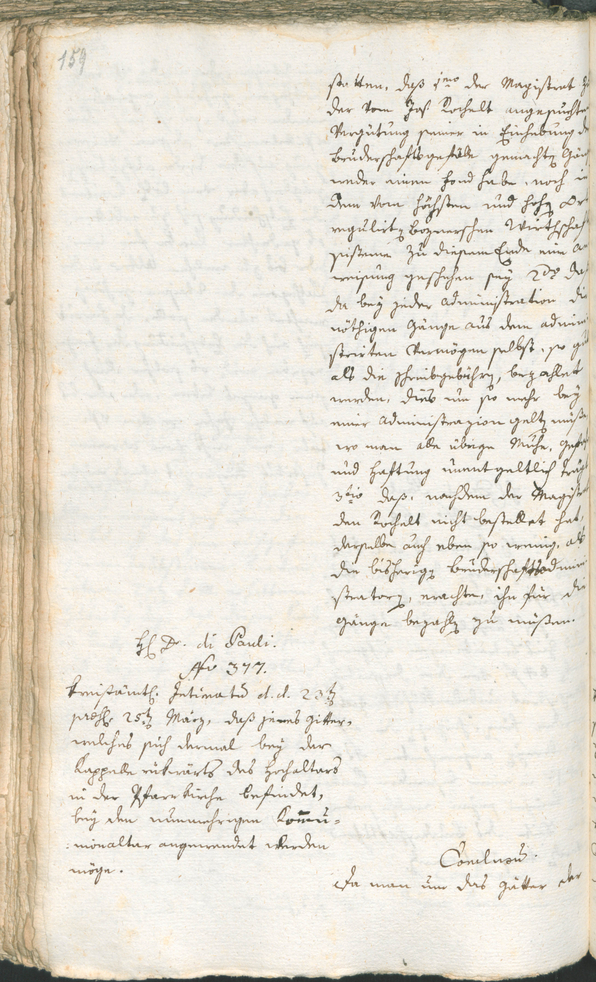 159
statten, daß 1mo der Magistrat zu
der vom Jos. Rochelt angesuchten
Vergütung seiner in Einhebung der
Bruderschaftsgefälle gemachten Gänge
weder einen Fond habe, noch in
dem vom höchsten und hohen
regulirten Boznerschen Wirthschafts
sisteme zu diesem Ende eine An
weisung geschehen sey 2do daß
da bey jeder Administration die
nöthigen Gänge aus dem admini
strirten Vermögen selbst, so gut
als die Schreibgebühren, bezahlet
werden, dies um so mehr bey
einer Administrazion gelten müsse
wo man alle übrige Mühe,
und Haftung unentgeltlich trägt
3tio daß, nachdem der Magistrat
den Rochelt nicht bestellet hat,
derselbe auch eben so wenig, als
die bisherigen Bruderschaftsadmini
stratoren, erachte, ihn für die
Gänge bezahlen zu müßen.
H. Dr. di Pauli.
Nro 377.
Kreisämtl. Intimatum d. d. 23ten
praes. 25ten März, daß jenes Gitter,
welches sich dermal bey der
Kappelle rükwärts des Hochaltars
in der Pfarrkirche befindet,
bey dem nunmehrigen Kommu=
nionaltar angewendet werden
möge.
Conclusum.
Da man nur das Gitter der